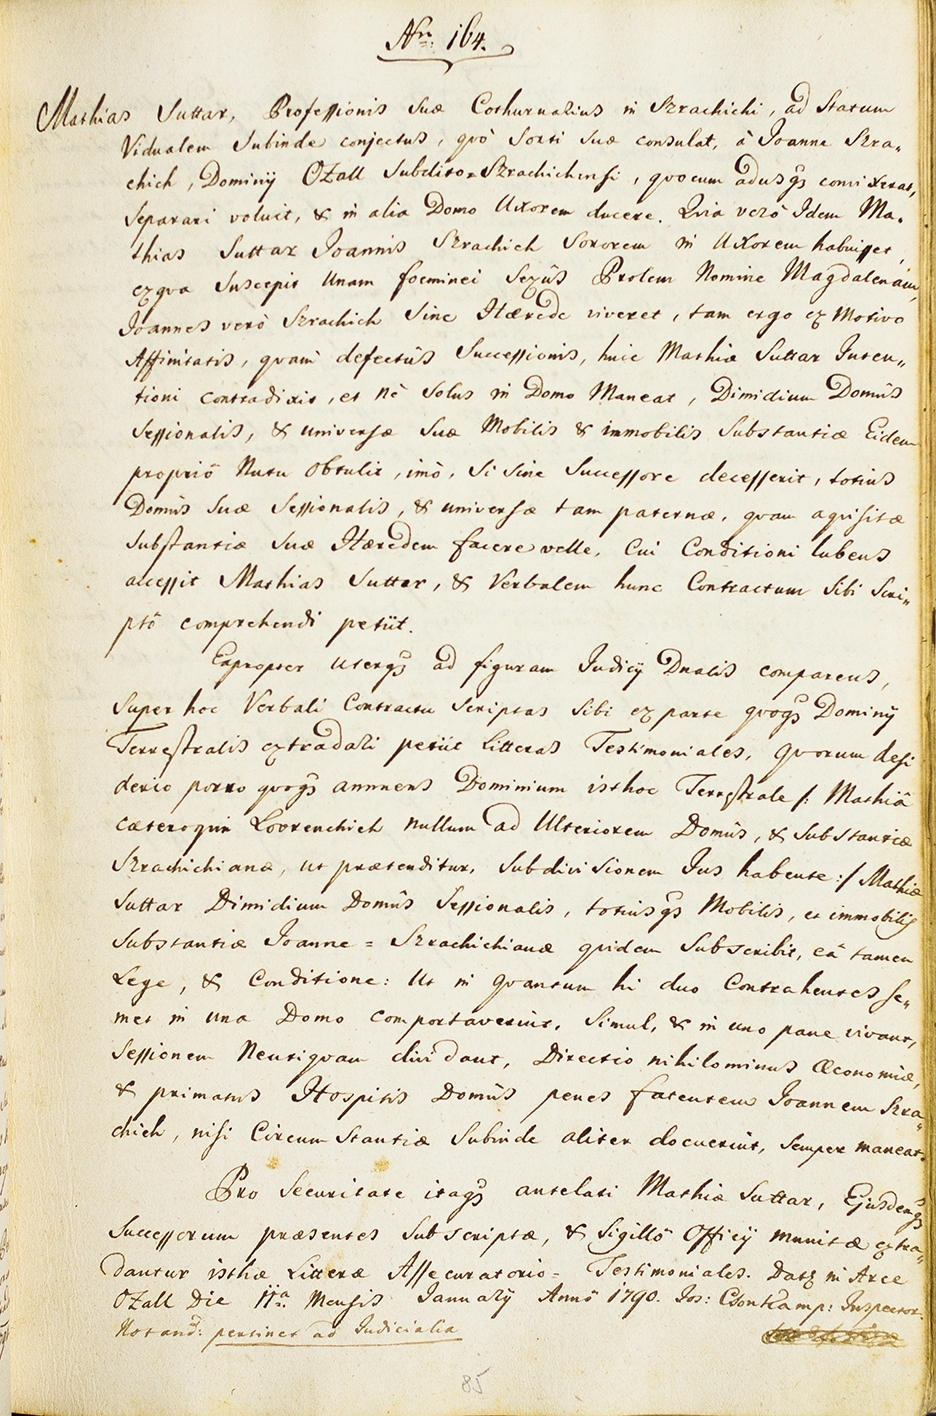 Nr: 164.
Mathias Suttar, Professionis suæ Cothurnarius in Szrachichi, ad Statum
Vidualem Subinde conjectus, quò Sorti suæ consulat, à Joanne Szra-
chich, Dominÿ Ozall Subdito Szrachichensi, quocum adusq3 convixerat,
Separari voluit, & in alia Domo Uxorem ducere. Quia verò Idem Ma-
thias Suttar Joannis Szrachich Sororem in Uxorem habuisset,
exqua Suscepit Unam foeminei Sexûs Prolem Nomine Magdalenam,
Joannes verò Szrachich Sine Hærede viveret, tam ergo ex Motivo
Affinitatis, quàm defectûs Successionis, huic Mathiæ Suttar Inten-
tioni contradixit, et nè Solus in Domo Maneat, Dimidium Domûs
Sessionalis, & universæ Suæ Mobilis & immobilis Substantiæ Eidem
propriô Nutu Obtulit, imò, Si Sine Successore decesserit, totius
Domûs Suæ Sessionalis, & universæ tam paternæ, quam aquisitæ
Substantiæ Suæ Hæredem facere velle, Cui Conditioni lubens
accessit Mathias Suttar, & Verbalem hunc Contractum Sibi Scri-
ptô comprehendi petiit.
Eapropter Uterq3 ad figuram Judicÿ Dnalis comparens,
Super hoc Verbali Contractu Scriptas Sibi ex parte quoq3 Dominÿ
Terrestralis extradari petiit Litteras Testimoniales, quorum desi
derio porro quoq3 annuens Dominium isthoc Terrestrale /: Mathiâ
cæteroquin Lovrenchich nullum ad Ulteriorem Domûs, & Substantiæ
Szrachichianæ, ut prætenditur, Subdivisionem Jus habente :/ Mathiæ
Suttar Dimidium Domûs Sessionalis, totiusq3 Mobilis, et immobilis
Substantiæ Joanne = Szrachichianæ quidem Subscribit, eâ tamen
Lege, & Conditione: Ut in quantum hi duo Contrahentes se-
met in una Domo comportaverint, Simul, & in uno pane vivant,
Sessionem Neutiquam dividant, Directio nihilominus Œconomiæ,
& primatus Hospitis Domûs penes fatentem Joannem Szra-
chich, nisi Circumstantiæ Subinde aliter docuerint, Semper maneat.
Pro Securitate itaq3 antelati Mathiæ Suttar, Ejusdemq3
Successorum præsentes Subscriptæ, & Sigillô Officÿ munitæ extra-
dantur isthæ Litteræ Assecuratorio = Testimoniales. Dat3 in Arce
Ozall Die 11a Mensis Januarÿ Annô 1790. Jos: Inspector.
Notand: pertinet ad Judicialia
85